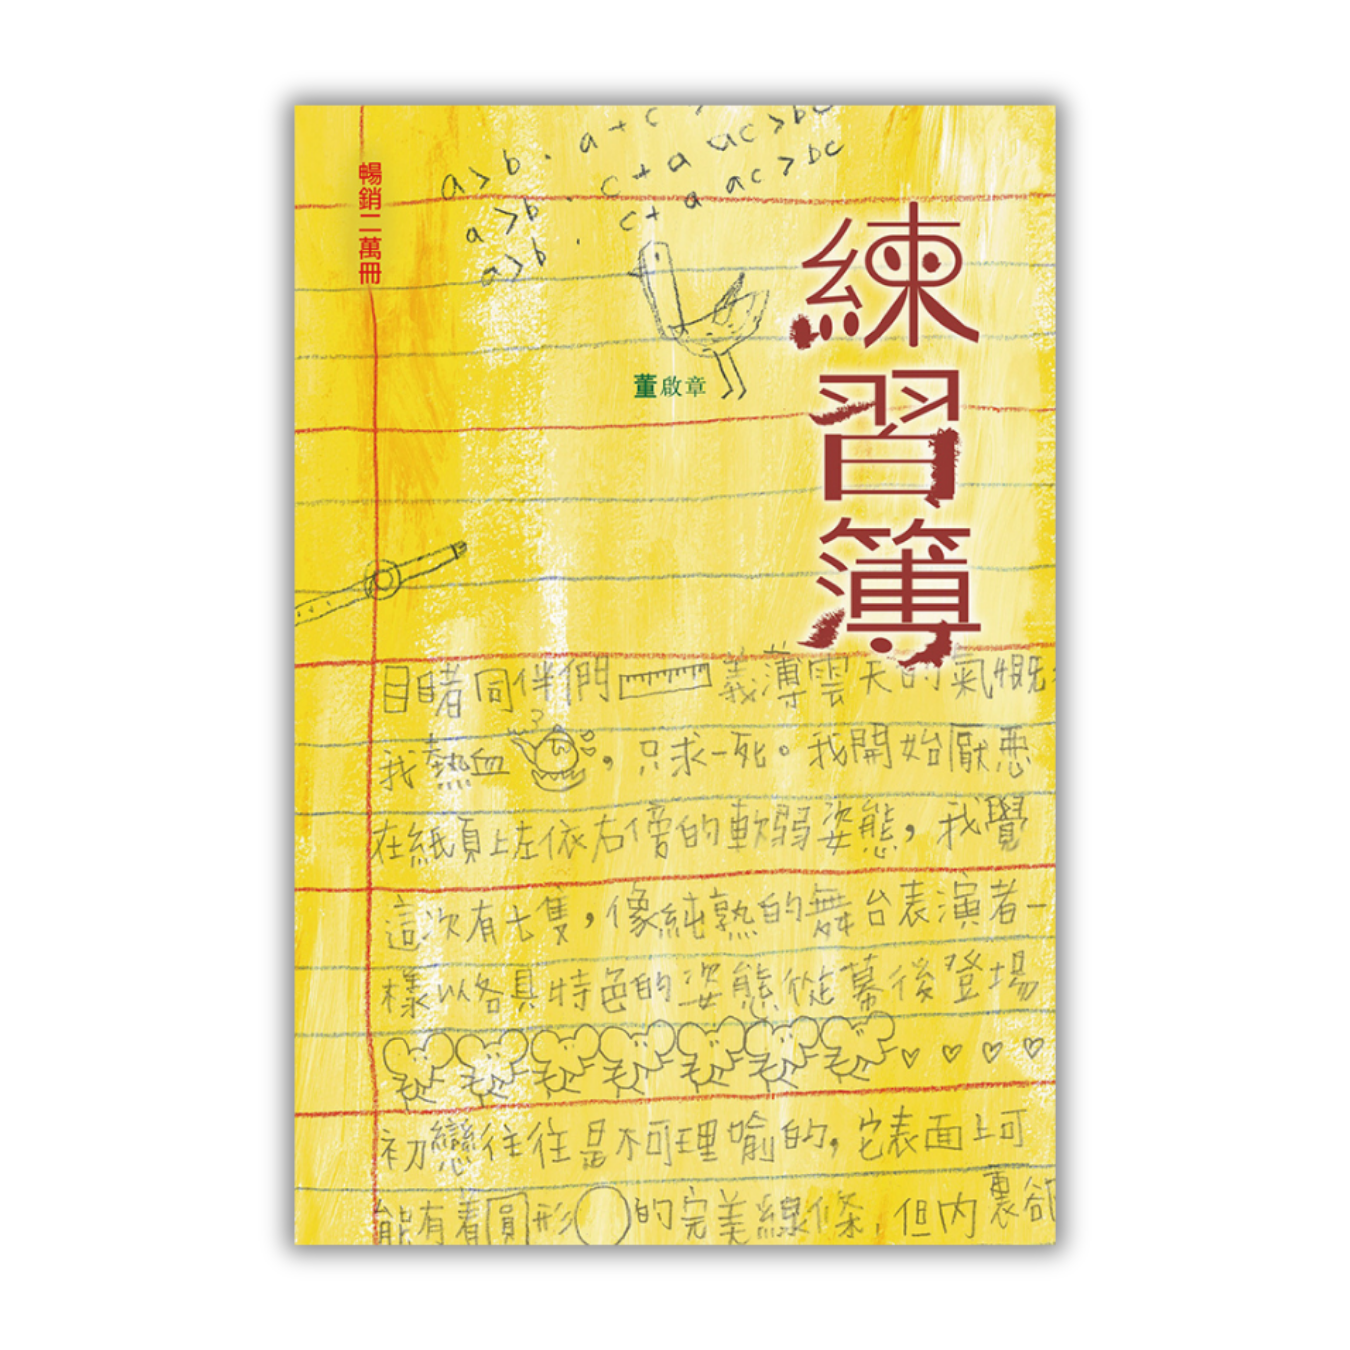 a>b . a+c >
a>b . c+a ac>bc
a>b . c+a ac>bc
暢銷二萬冊
練習簿
董啟章
目睹同伴們 義薄雲天的氣慨
我熱血 ，只求一死。我開始厭惡
在紙頁上左依右傍的軟弱姿態，我覺
這次有七隻，像純熟的舞台表演者一
樣以各具特色的姿態從幕後登場
初戀往往是不可理喻的，它表面上可
能有着圓形 的完美線條，但內裏卻